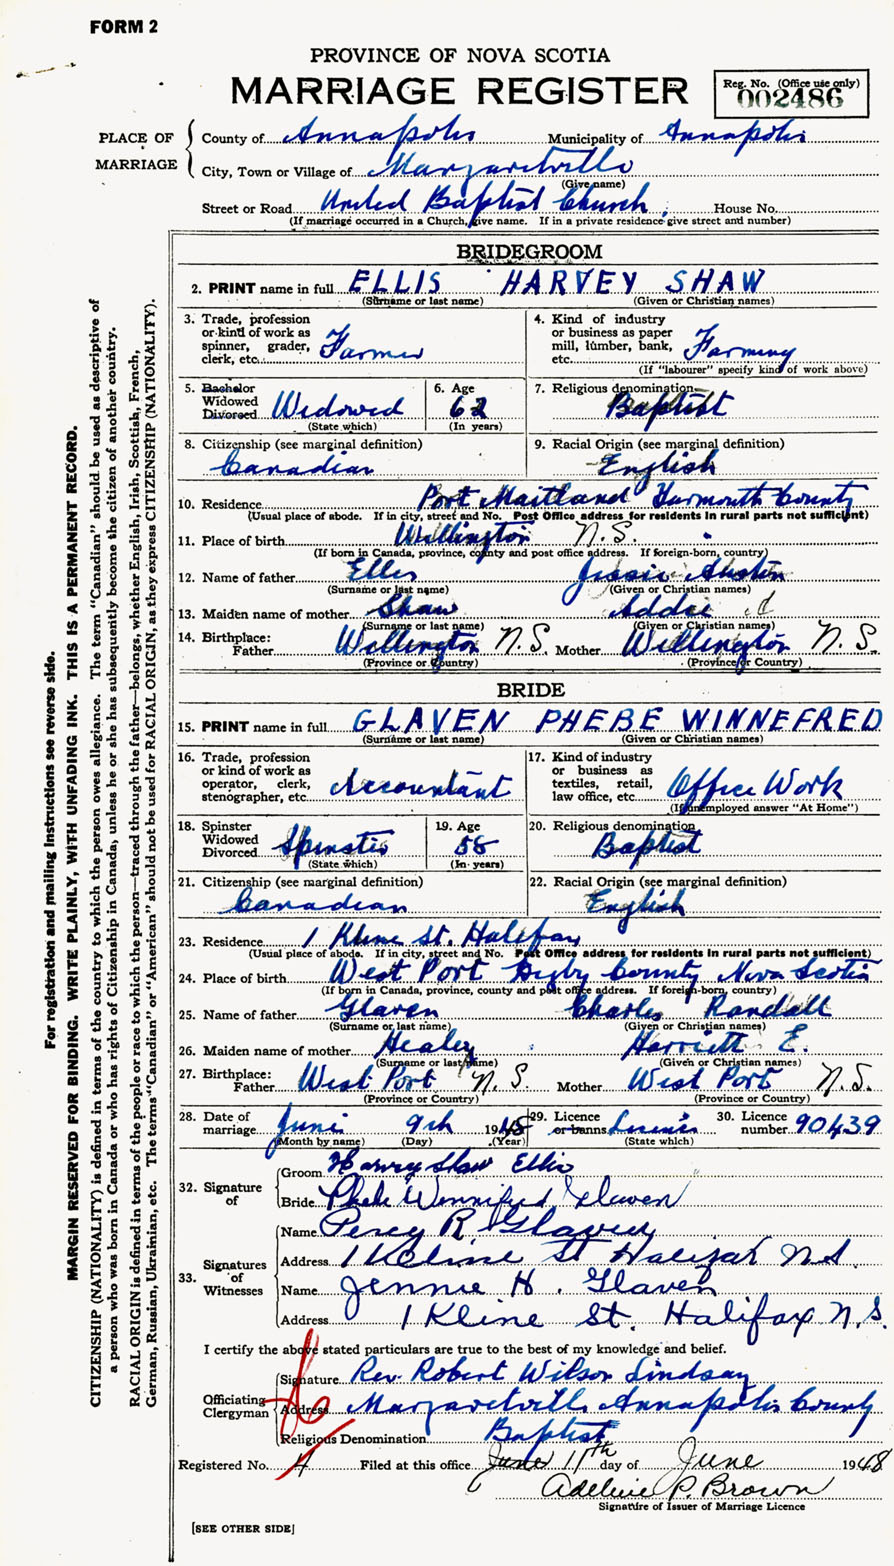 FORM 2
PROVINCE OF NOVA SCOTIA
MARRIAGE REGISTER
Reg. No. (Office use only)
002486
PLACE OF MARRIAGE
County of Annapolis Municipality of Annapolis
City, Town or Village of Margaretville
(Give name)
Street or Road United Baptist Church, House No.
(If marriage occurred in a Church, give name. If in a private residence give street and number)
BRIDEGROOM
2. PRINT name in full ELLIS HARVEY SHAW
(Surname or last name) (Given or Christian names)
3. Trade, profession or kind of work as spinner, grader, clerk, etc. Farmer
4. Kind of industry or business as paper mill, lumber, bank, etc. Farming
(If "labourer" specify kind of work above)
5. Bachelor Widowed Divorced Widowed
(State which)
6. Age 62
(In years)
7. Religious denomination Baptist
8. Citizenship (see marginal definition)
Canadian
9. Racial Origin (see marginal definition)
English
10. Residence Port Maitland Yarmouth County
(Usual place of abode. If in city, street and No. Post Office address for residents in rural parts not sufficient)
11. Place of birth Wellington N.S.
(If born in Canada, province, county and post office address. If foreign-born, country)
12. Name of father Ellis
(Surname or last name) (Given or Christian names)
13. Maiden name of mother Shaw Addie
(Surname or last name) (Given or Christian names)
14. Birthplace: Father Wellington N.S. Mother Wellington N.S.
(Province or Country) (Province or Country)
BRIDE
15. PRINT name in full GLAVEN PHEBE WINNEFRED
(Surname or last name) (Given or Christian names)
16. Trade, profession or kind of work as operator, clerk, stenographer, etc. Accountant
17. Kind of industry or business as textiles, retail, law office, etc. Office Work
(If unemployed answer "At Home")
18. Spinster Widowed Divorced Spinster
(State which)
19. Age 58
(In years)
20. Religious denomination Baptist
21. Citizenship (see marginal definition)
Canadian
22. Racial Origin (see marginal definition)
English
23. Residence 1 Kline St. Halifax
(Usual place of abode. If in city, street and No. Post Office address for residents in rural parts not sufficient)
24. Place of birth West Port Digby County Nova Scotia
(If born in Canada, province, county and post office address. If foreign-born, country)
25. Name of father Glaven Charles Randall
(Surname or last name) (Given or Christian names)
26. Maiden name of mother Healey Harriett E.
(Surname or last name) (Given or Christian names)
27. Birthplace: Father West Port N.S. Mother West Port N.S.
(Province or Country) (Province or Country)
28. Date of marriage June 9th 1948
(Month by name) (Day) (Year)
29. Licence or banns License
(State which)
30. Licence number 90439
32. Signature of
Groom Harvey Shaw Ellis
Bride Phebe Winnifred Glaven
33. Signatures of Witnesses
Name Percy R. Glaven
Address 1 Kline St Halifax N.S.
Name Jennie H. Glaven
Address 1 Kline St. Halifax N.S.
I certify the above stated particulars are true to the best of my knowledge and belief.
Officiating Clergyman
Signature Rev. Robert Wilson Lindsay
Address Margaretville Annapolis County
Religious Denomination Baptist
Registered No. 4 Filed at this office June 11th day of June 1948
Adeline P. Brown
Signature of Issuer of Marriage Licence
[SEE OTHER SIDE]
For registration and mailing instructions see reverse side.
MARGIN RESERVED FOR BINDING. WRITE PLAINLY, WITH UNFADING INK. THIS IS A PERMANENT RECORD.
CITIZENSHIP (NATIONALITY) is defined in terms of the country to which the person owes allegiance. The term "Canadian" should be used as descriptive of
a person who was born in Canada or who has rights of Citizenship in Canada, unless he or she has subsequently become the citizen of another country.
RACIAL ORIGIN is defined in terms of the people or race to which the person—traced through the father—belongs, whether English, Irish, Scottish, French,
German, Russian, Ukrainian, etc. The terms "Canadian" or "American" should not be used for RACIAL ORIGIN, as they express CITIZENSHIP (NATIONALITY).